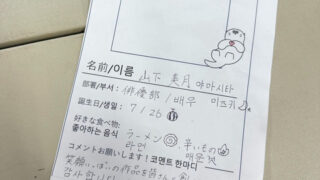 名前/이름 山下 美月 야마시타 미즈키
部署/부서: 俳優部 / 배우
誕生日/생일: 7 / 26
好きな食べ物: ラーメン 辛いもの
좋아하는 음식 라면 매운 것
コメントお願いします! 코멘트 한마디
笑顔いっぱいの作品を皆さんへ
감사합니다